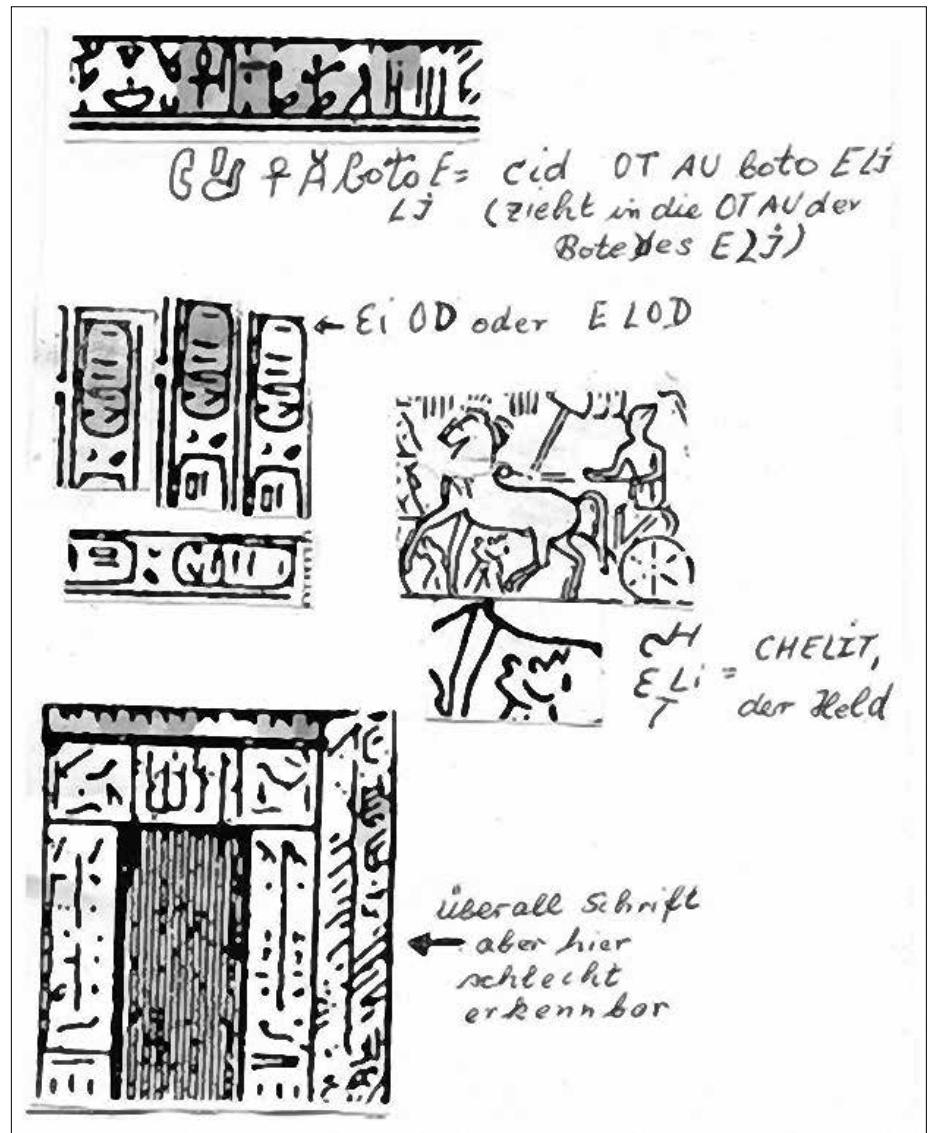 ♀ Boto E = cid OT AU boto ELj
Lj (zieht in die OT AU der
Bote des ELj)
← Ei OD oder ELOD
CH
ELi = CHELIT,
T der Held
überall Schrift
aber hier
schlecht
erkennbar